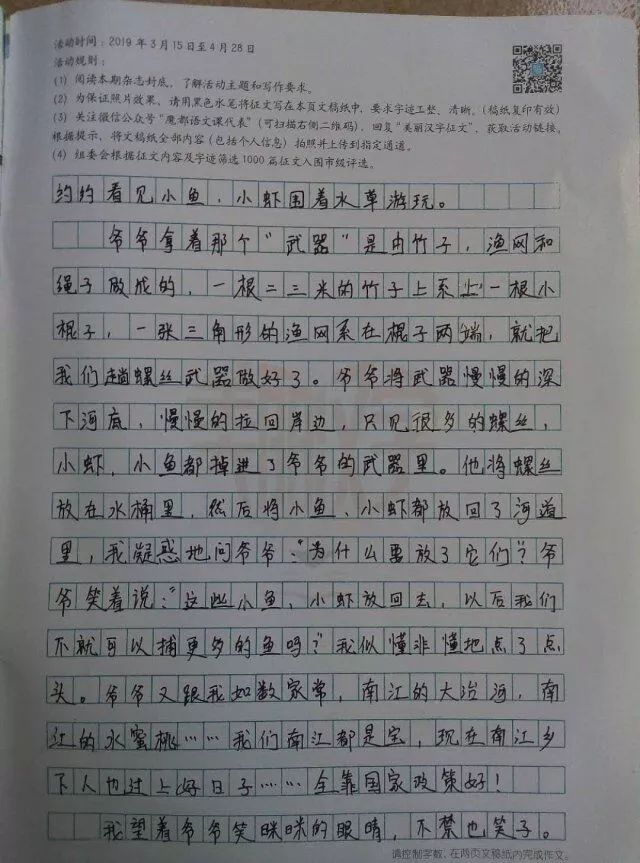 活动时间：2019 年 3 月 15 日至 4 月 28 日
活动规则：
(1) 阅读本期杂志封底，了解活动主题和写作要求。
(2) 为保证照片效果，请用黑色水笔将征文写在本页文稿纸中，要求字迹工整、清晰。(稿纸复印有效)
(3) 关注微信公众号“魔都语文课代表”(可扫描右侧二维码)，回复“美丽汉字征文”，获取活动链接，
根据提示，将文稿纸全部内容(包括个人信息)拍照并上传到指定通道。
(4) 组委会根据征文内容及字迹筛选1000篇征文入围市级评选。
约约看见小鱼，小虾围着水草游玩。
爷爷拿着那个“武器”是由竹子，渔网和
绳子做成的，一根二三米的竹子上系上一根小
棍子，一张三角形的渔网系在棍子两端，就把
我们趟螺丝武器做好了。爷爷将武器慢慢的深
下河底，慢慢的拉回岸边，只见很多的螺丝，
小虾，小鱼都掉进了爷爷的武器里。他将螺丝
放在水桶里，然后将小鱼、小虾都放回了河道
里，我疑惑地问爷爷：“为什么要放了它们？爷
爷笑着说：“这些小鱼、小虾放回去，以后我们
不就可以捕更多的鱼吗？”我似懂非懂地点了点
头。爷爷又跟我如数家常，南江的大治河，南
江的水蜜桃……我们南江都是宝，现在南江乡
下人也过上好日子……全靠国家政策好！
我望着爷爷笑眯眯的眼睛，不禁也笑了。
请控制字数，在两页文稿纸内完成作文。